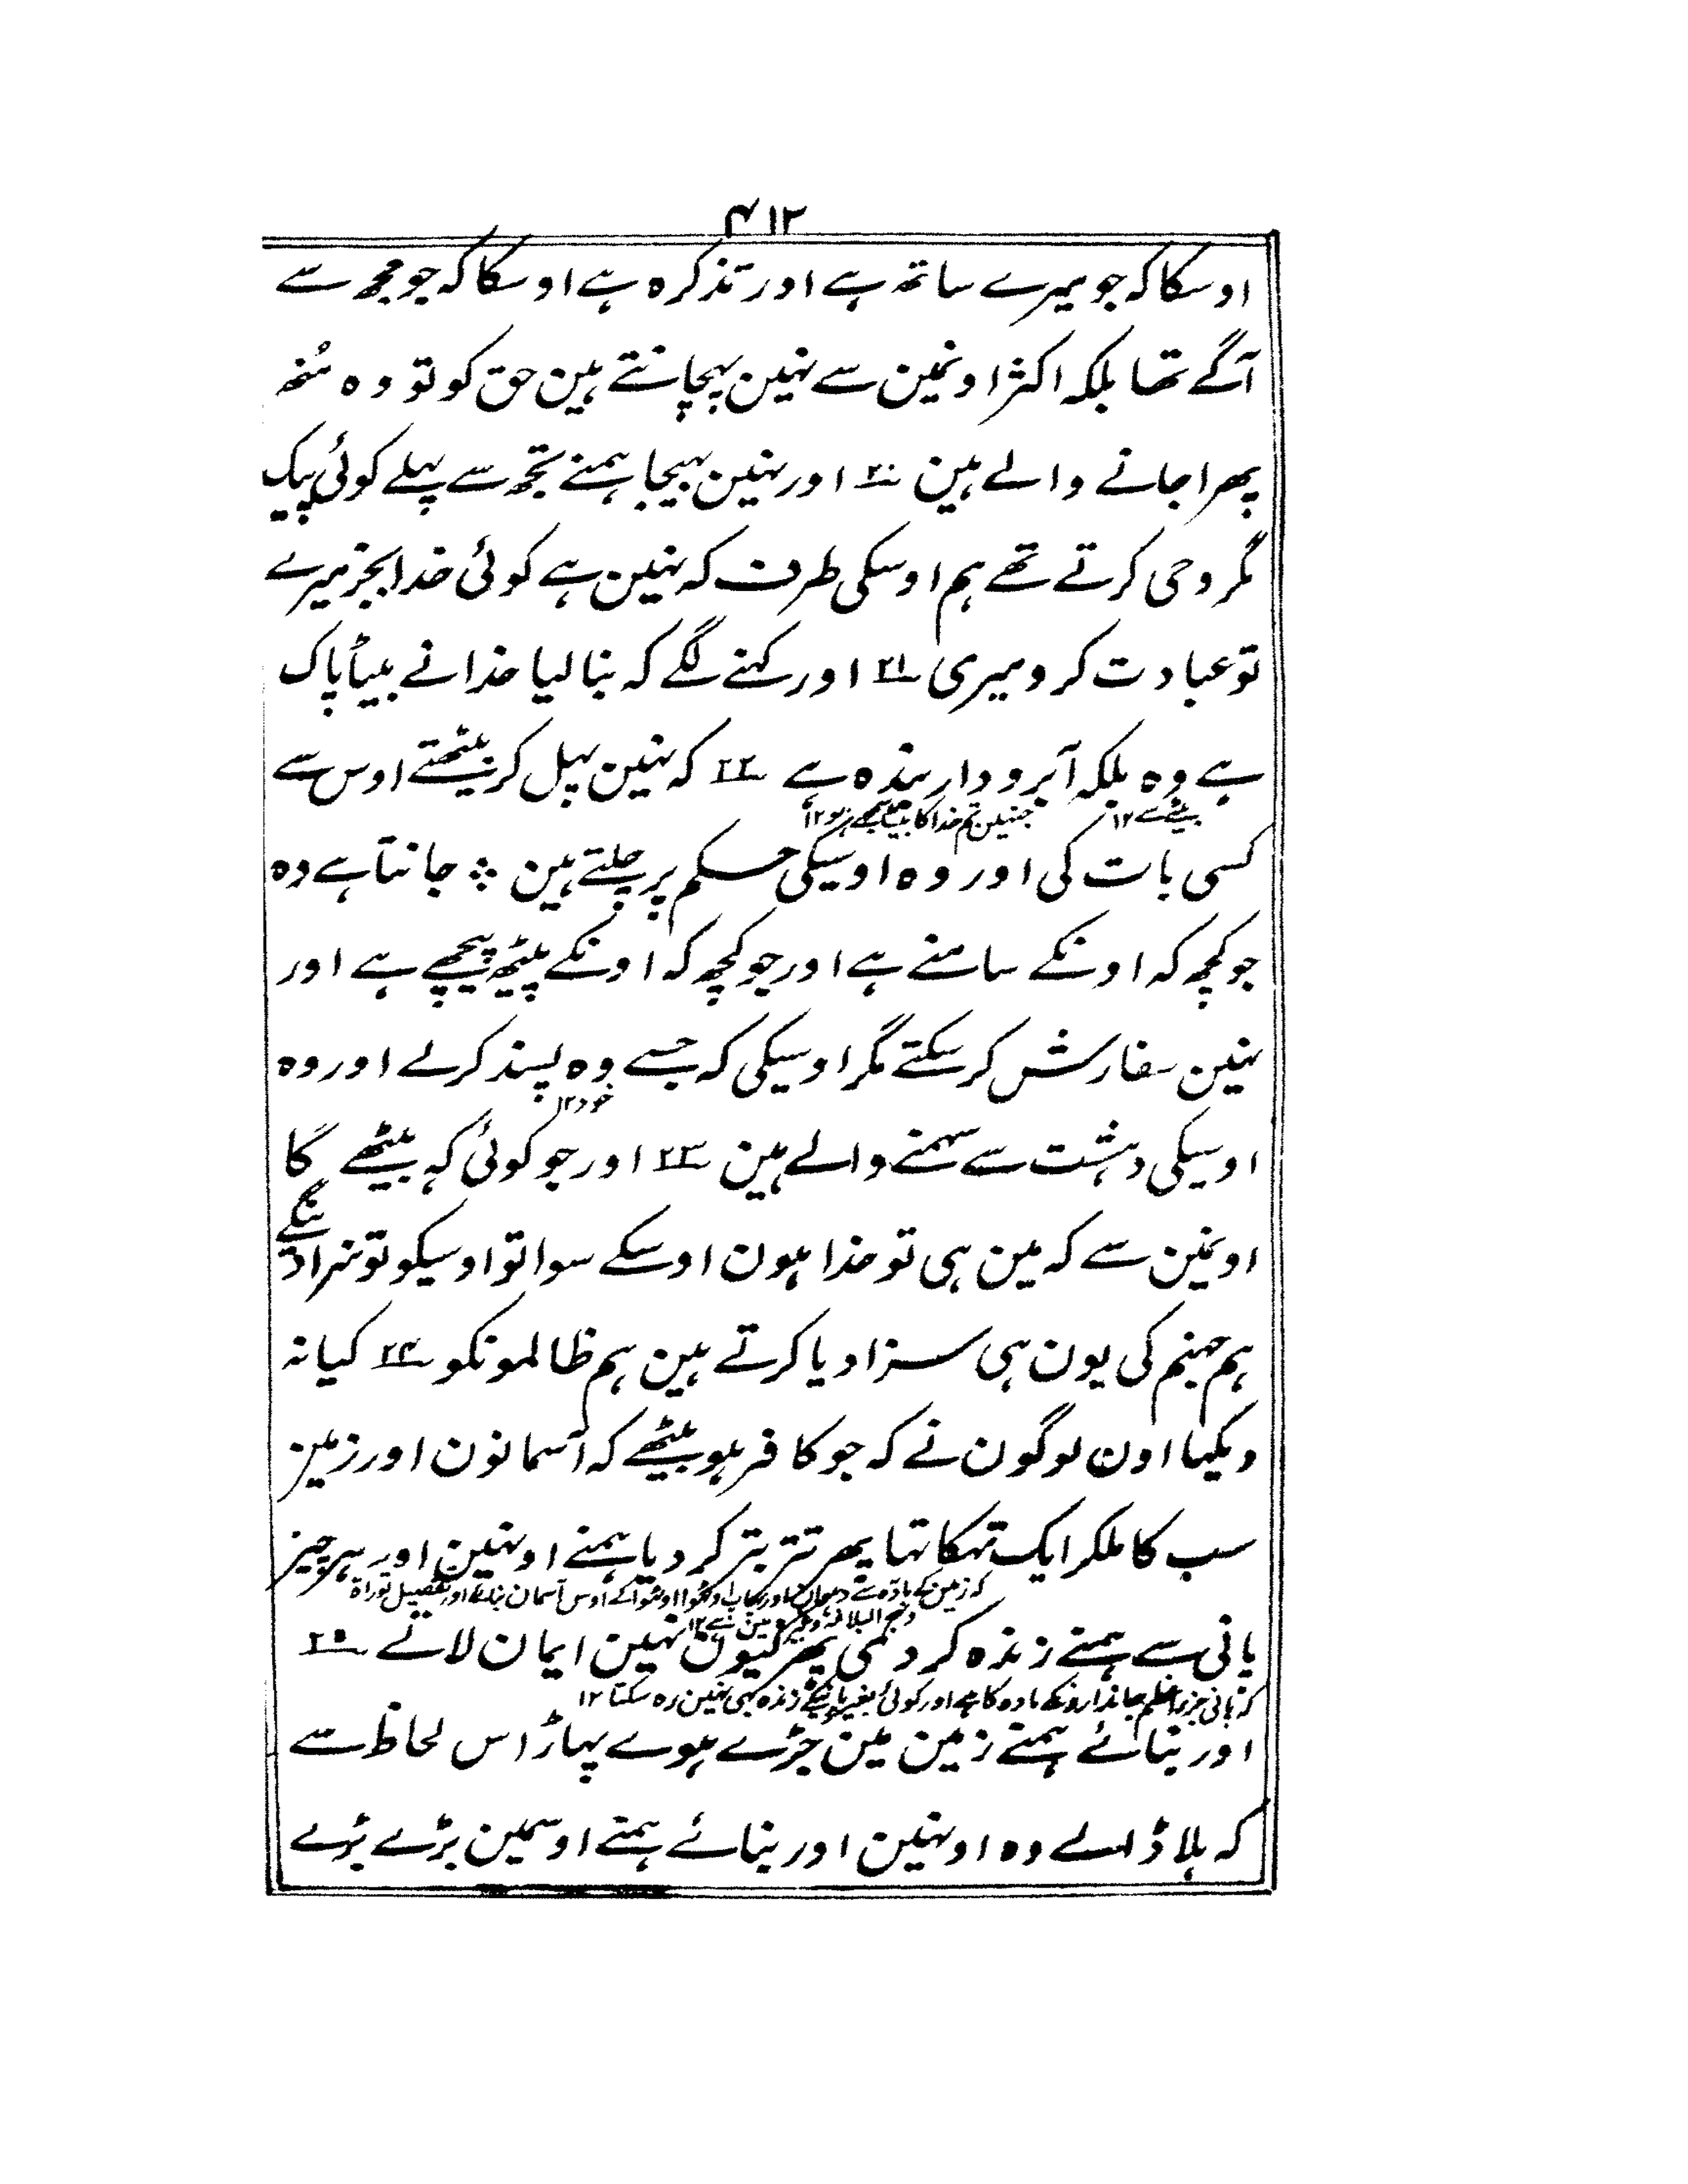 ۴۱۲
اوسکا کہ جو میرے ساتھ ہے اور تذکرہ ہے اوسکا کہ جو مجھ سے
آگے تھا بلکہ اکثر اونمین سے نہین پہچانتے ہین حق کو تو وہ منھ
پھرا جانے والے ہین ۲۰ اور نہین بہیجا ہمنے تجھ سے پہلے کوئی پیک
مگر وحی کرتے تھے ہم اوسکی طرف کہ نہین ہے کوئی خدا بجز میرے
تو عبادت کرو میری ۲۱ اور کہنے لگے کہ بنا لیا خدا نے بیٹا پاک
ہے وہ بلکہ آبرو دار بندہ ہے ۲۲ کہ نہین پہل کر بیٹھتے اوس سے
بیٹے سے ۱۲ جنہین تم خدا کا بیٹا سمجھے ہو ۱۲
کسی بات کی اور وہ اوسیکی حکم پر چلتے ہین ؞ جانتا ہے وہ
جو کچھ کہ اونکے سامنے ہے اور جو کچھ کہ اونکے پیٹھ پیچھے ہے اور
نہین سفارش کر سکتے مگر اوسیکی کہ جسے وہ پسند کرلے اور وہ
خود ۱۲
اوسیکی دہشت سے سہمنے والے ہین ۲۳ اور جو کوئی کہ بیٹھے گا
اونمین سے کہ مین ہی تو خدا ہون اوسکے سوا تو اوسیکو تو سزا دینگے
ہم جہنم کی یون ہی سزا دیا کرتے ہین ہم ظالمونکو ۲۴ کیا نہ
دیکہا اون لوگون نے کہ جو کافر ہو بیٹھے کہ آسمانون اور زمین
سب کا ملکر ایک تہکا تہا پھر تتر بتر کر دیا ہمنے اونہین اور ہر چیز
کہ زمین کے مادہ سے دہوان اور بہاپ اوٹہوا کے اوس آسمان بنائے اور تفصیل توراۃ
و نہج البلاغہ وغیرہ مین ہے ۱۲
پانی سے ہمنے زندہ کر دی پھر کیون نہین ایمان لاتے ۲۵
کہ پانی جزو اعظم جاندارونکے مادہ کا ہے اور کوئی بغیر پانیکے زندہ بہی نہین رہ سکتا ۱۲
اور بنائے ہمنے زمین مین جڑے ہوے پہاڑ اس لحاظ سے
کہ ہلا ڈالے وہ اونہین اور بنائے ہمنے اوسمین بڑے بڑے